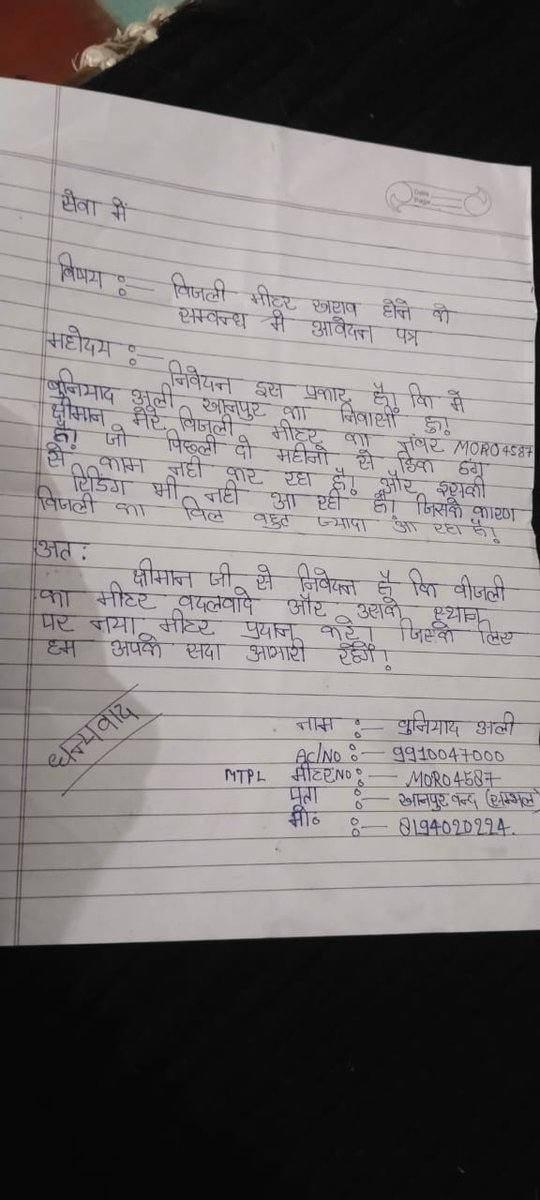 Date
Page
सेवा में
विषय :— विजली मीटर खराव होने के
सम्वन्ध में आवेदन पत्र
महोदय :—
निवेदन इस प्रकार है। कि में
बुनियाद अली खानपुर का निवासी हू।
श्रीमान मेरे विजली मीटर का नंवर MOR04587
है। जो पिछली दो महीनो से ठिक ढंग
से काम नही कर रहा है। और इसकी
रिडिंग भी नही आ रही है। जिसके कारण
विजली का विल वहुत ज्यादा आ रहा है।
अतः
श्रीमान जी से निवेदन है कि वीजली
का मीटर वदलवादे और उसके स्थान
पर नया मीटर प्रदान करे। जिसके लिए
हम अपके सदा आभारी रहेंगे।
धन्यवाद
नाम :— बुनियाद अली
Ac/No :— 9910047000
MTPL मीटरNo :— MOR04587
पता :— खानपुर वन्द (सम्भल)
मो० :— 8194020224.